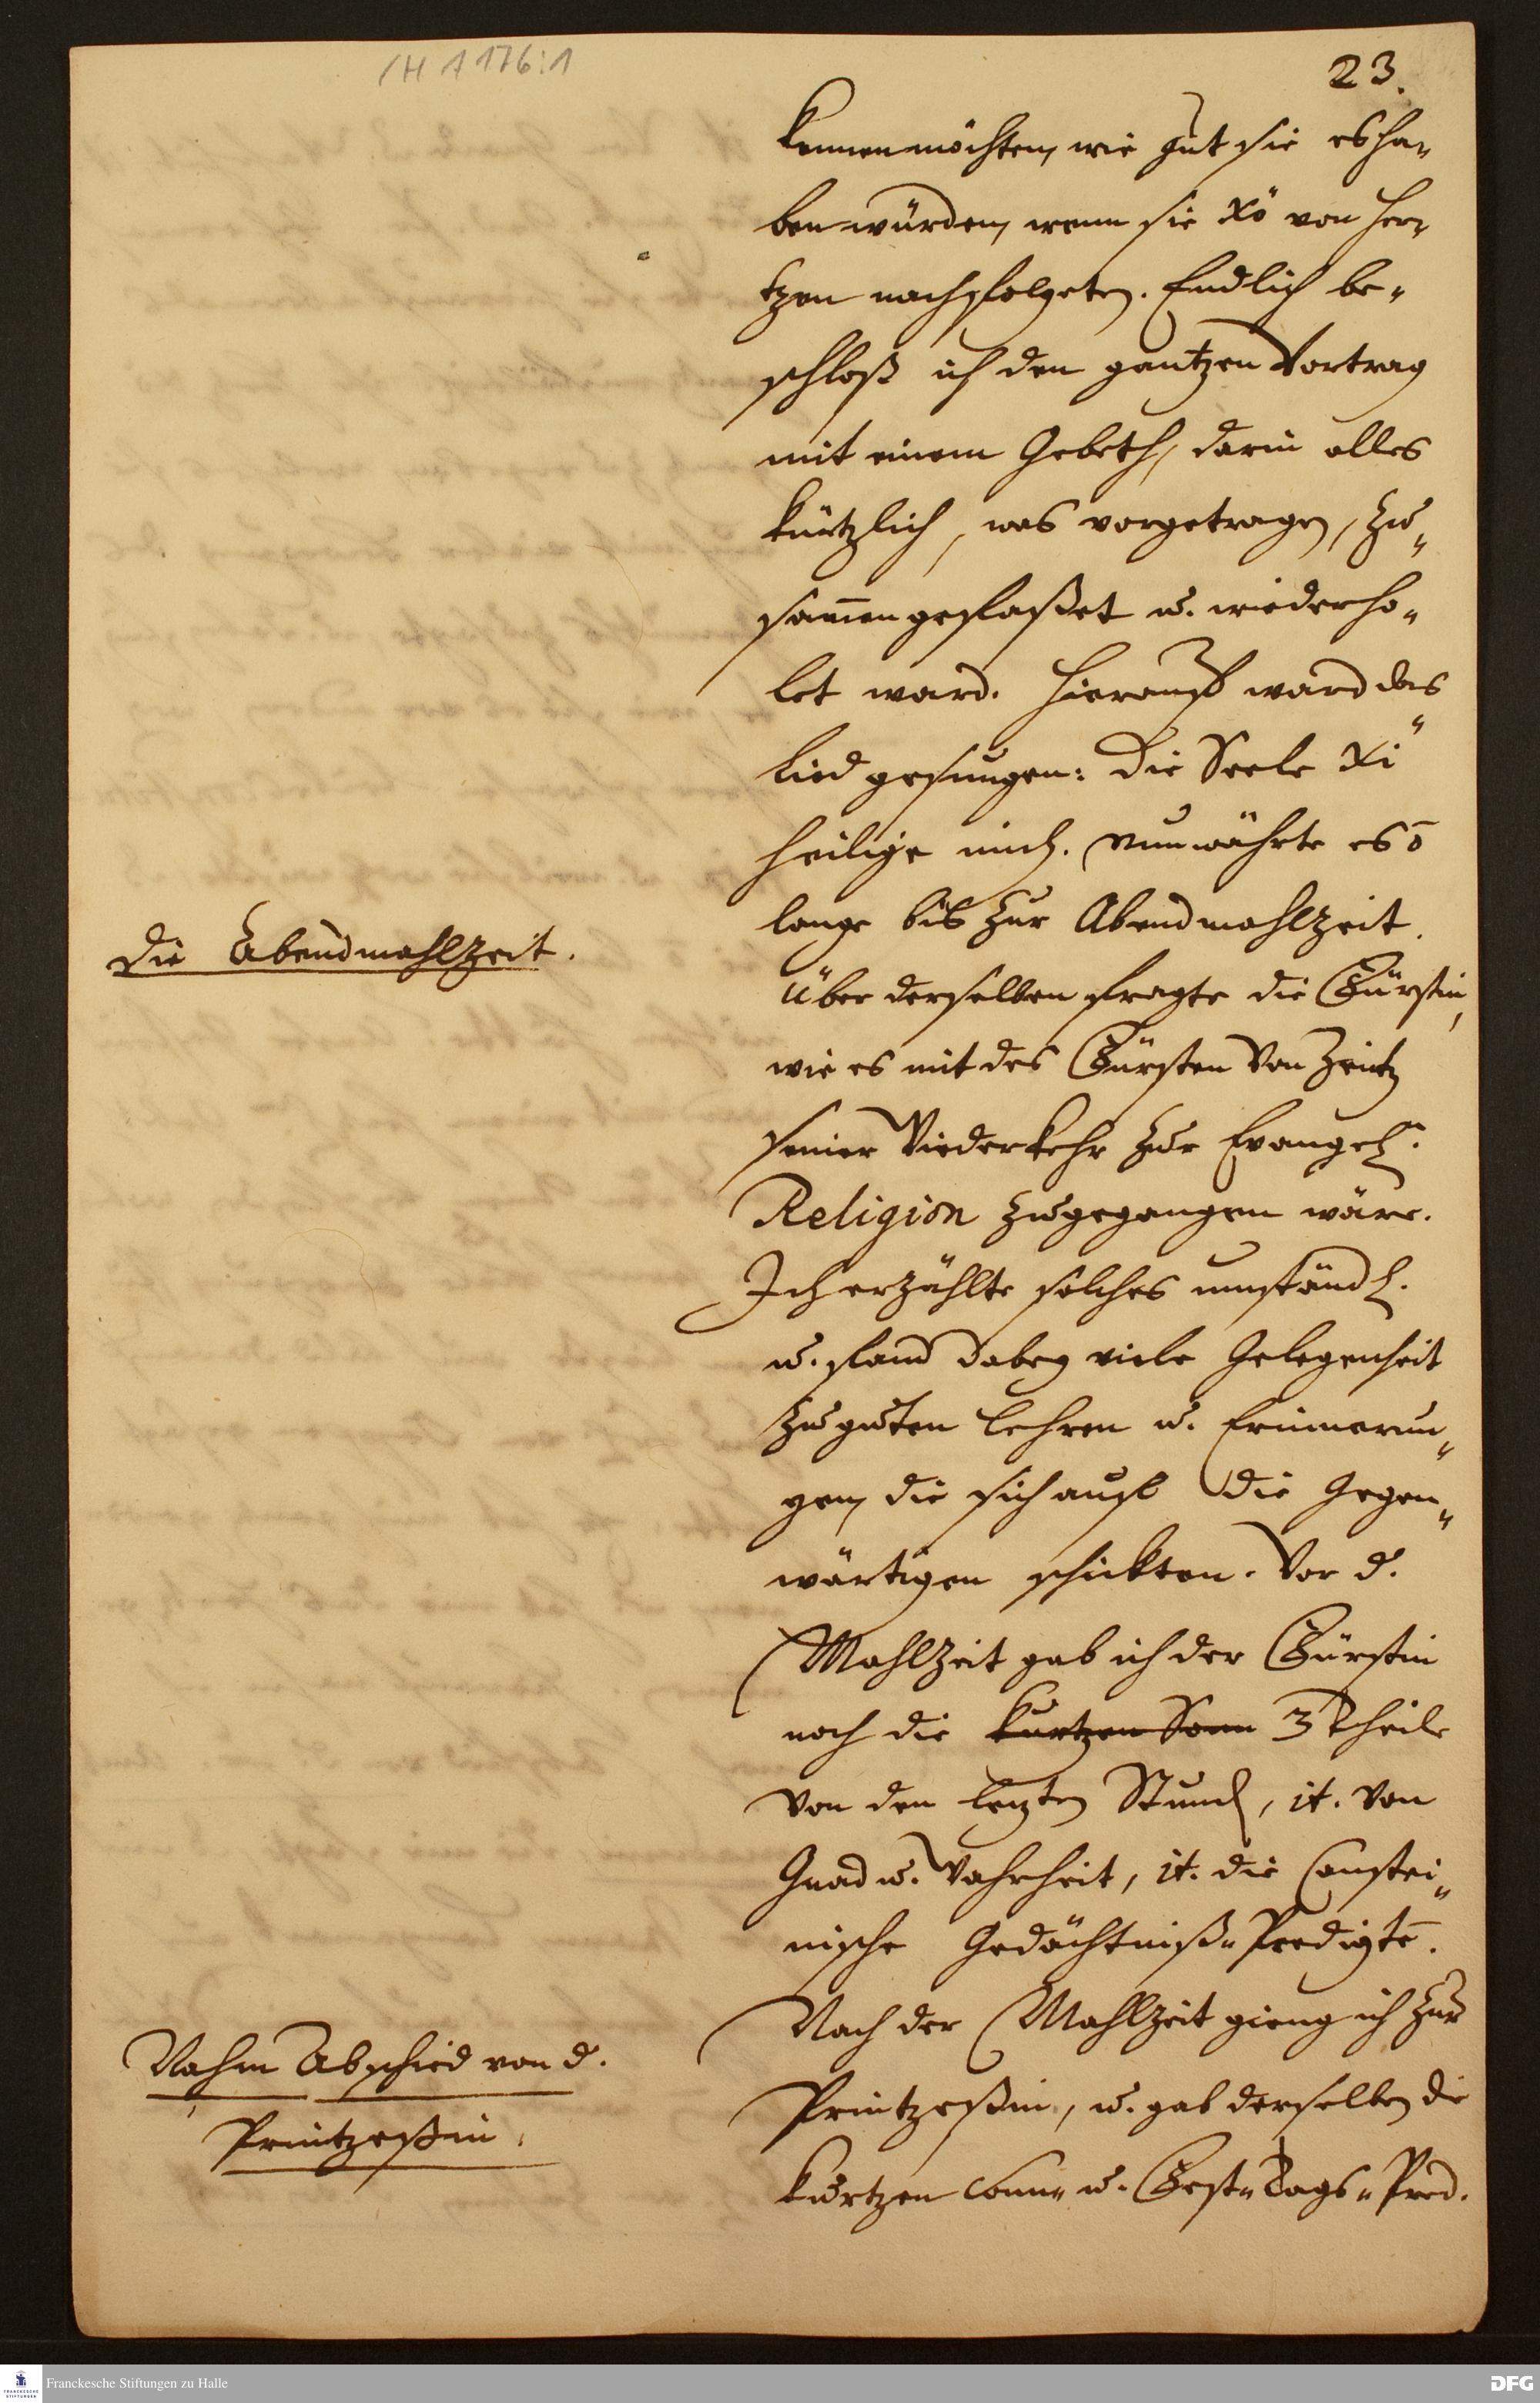 /H A 176:1
23.
kennen möchten, wie gut sie es ha„
ben würden, wenn sie Xo von Her„
tzen nachfolgeten. Endlich be„
schloß ich den gantzen Vortrag
mit einem Gebeth, darin alles
kürtzlich, was vorgetragen, zu„
sam̄en gefaßet u. wiederho„
let ward. Hierauf ward das
Lied gesungen: Die Seele Xi
heilige mich. Nun währte es ō
lange biß zur Abendmahlzeit.
Die Abendmahlzeit.
Über derselben fragte die Fürstin,
wie es mit des Fürsten von Zeitz
seiner Wiederkehr zur Evangel.
Religion zugegangen wäre.
Ich erzählte solches umständl.
u. fand dabey viele Gelegenheit
zu guten Lehren u. Erinnerun„
gen, die sich auf die Gegen„
wärtigen schickten. Vor d.
Mahlzeit gab ich der Fürstin
noch die kurtzen Sonn 3 Theile
von den letzten Stund, it. von
Gnad u. Wahrheit, it. die Canstei„
nische Gedächtniß„Predigtē.
Nach der Mahlzeit gieng ich zur
Nahm Abschied von d.
Printzeßin.
Printzeßin, u. gab derselben die
kurtzen Sonn„ u. Fest„Tags„Pred.
Franckesche Stiftungen zu Halle
DFG